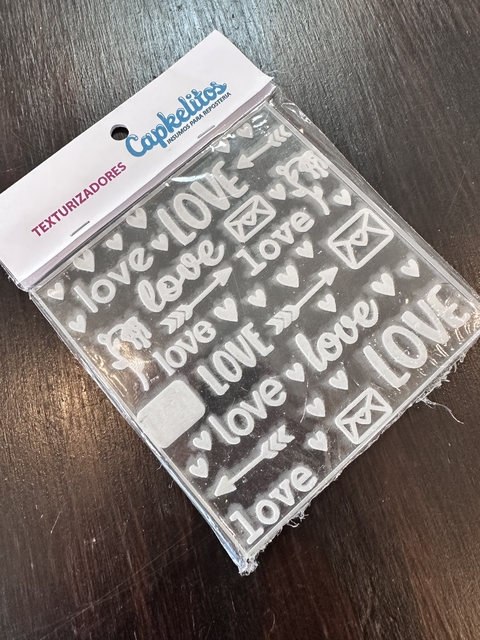 TEXTURIZADORES
Capkelitos
INSUMOS PARA REPOSTERIA
LOVE
love
love
love
love
LOVE
love
love
LOVE
love